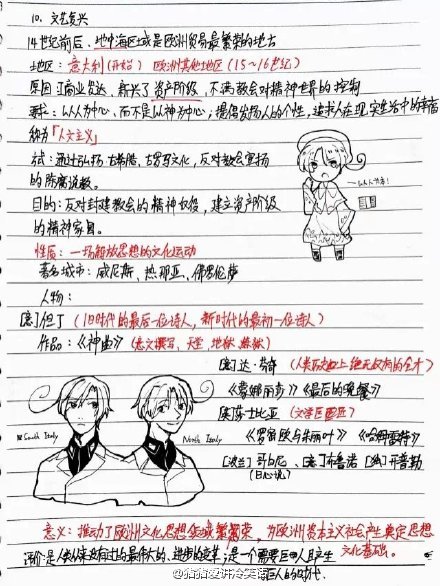 10. 文艺复兴
14世纪前后、地中海区域是欧洲贸易最繁荣的地方
地区：意大利(开始) 欧洲其他地区(15~16世纪)
原因：工商业发达，新兴了资产阶级，不满教会对精神世界的控制
要求：以人为中心，而不是以神为中心；提倡发扬人的个性，追求人在现实生活中的幸福
称为「人文主义」
方式：通过弘扬古希腊、古罗马文化，反对教会宣扬
的陈腐说教。
目的：反对封建教会的精神奴役，建立资产阶级
的精神家园。
性质：一场解放思想的文化运动
著名城市：威尼斯、热那亚、佛罗伦萨
人物：
[意]但丁(旧时代的最后一位诗人，新时代的最初一位诗人)
作品：《神曲》(意文撰写、天堂 地狱 炼狱)
[意]达·芬奇 (人类历史上绝无仅有的全才)
《蒙娜丽莎》《最后的晚餐》
[英]莎士比亚 (文学巨匠)
《罗密欧与朱丽叶》《哈姆雷特》
South Italy
North Italy
[波兰]哥白尼、[意]布鲁诺 [德]开普勒
(日心说)
意义：推动了欧洲文化思想领域繁荣，为欧洲资本主义社会产生奠定思想
文化基础。
评价：是人类从来没有过的最伟大的、进步的变革；是一个需要巨人且产生
巨人的时代
@指指爱讲冷笑话